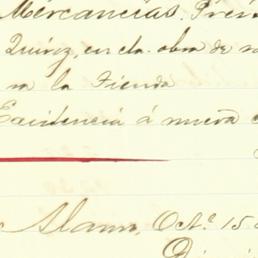 Mercancías.
Quiroz, en cta. obra de
ra la Tienda
Existencia á nueva
Alamo, Oct.e 15